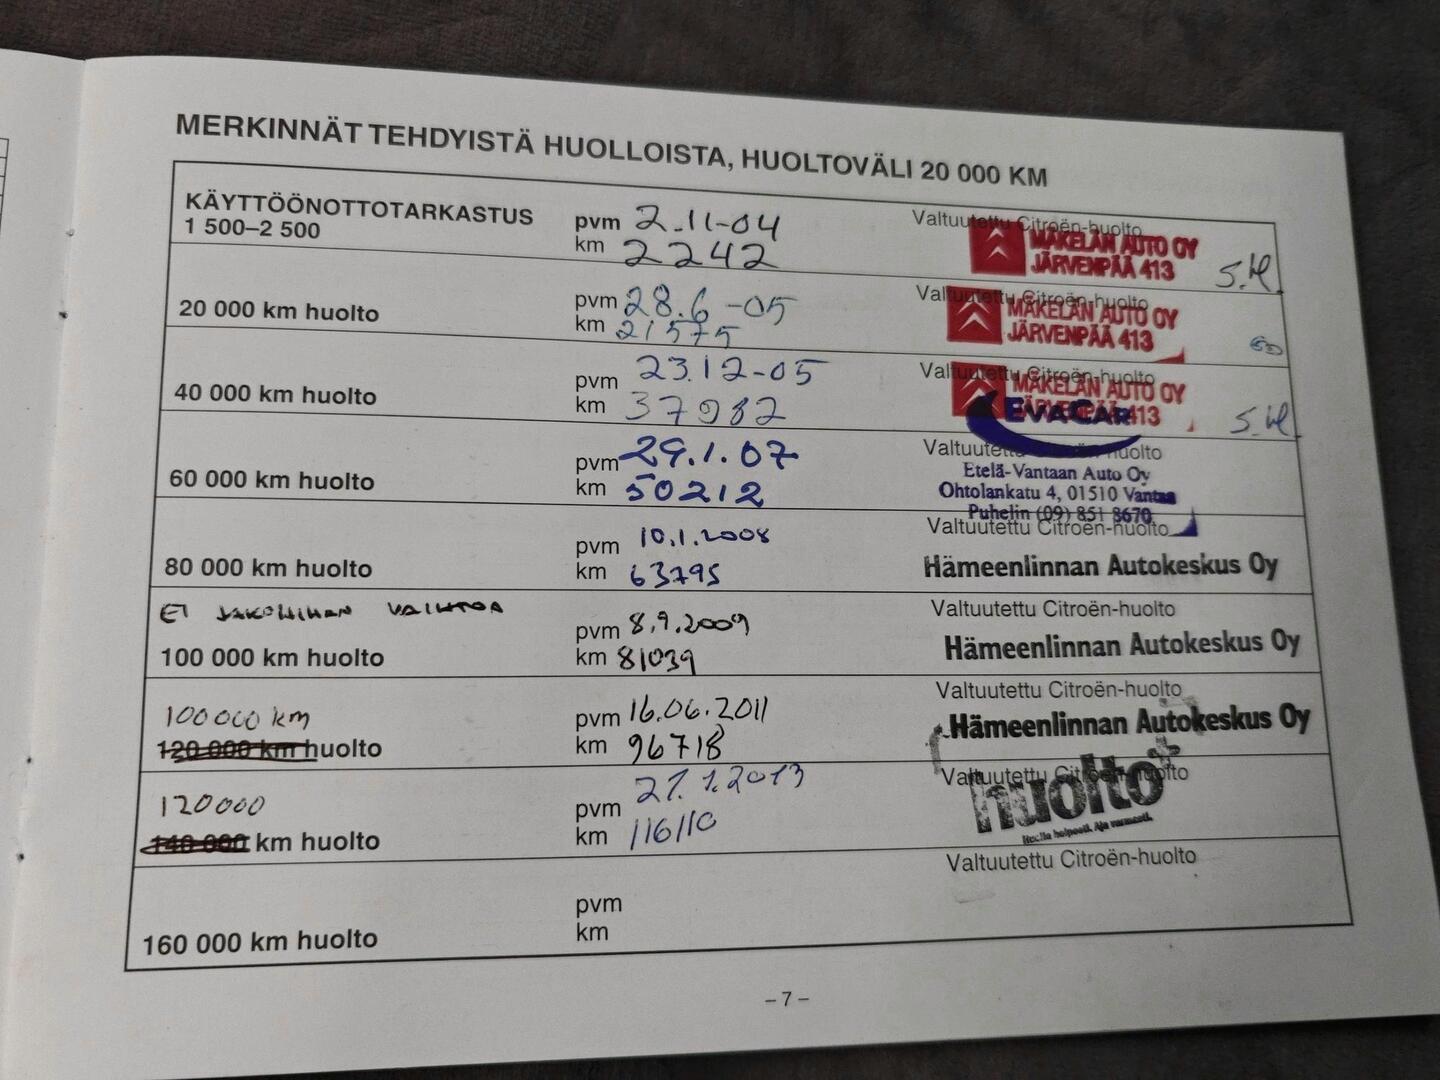 MERKINNÄT TEHDYISTÄ HUOLLOISTA, HUOLTOVÄLI 20 000 KM
KÄYTTÖÖNOTTOTARKASTUS
1 500–2 500
pvm 2.11-04
km 2242
Valtuutettu Citroën-huolto
MÄKELÄN AUTO OY
JÄRVENPÄÄ 413
S.H.
20 000 km huolto
pvm 28.6-05
km 21575
Valtuutettu Citroën-huolto
MÄKELÄN AUTO OY
JÄRVENPÄÄ 413
40 000 km huolto
pvm 23.12-05
km 37982
Valtuutettu Citroën-huolto
MÄKELÄN AUTO OY
JÄRVENPÄÄ 413
S.H.
60 000 km huolto
pvm 29.1.07
km 50212
EVACAR
Valtuutettu Citroën-huolto
Etelä-Vantaan Auto Oy
Ohtolankatu 4, 01510 Vantaa
Puhelin (09) 851 8670
80 000 km huolto
pvm 10.1.2008
km 63795
Valtuutettu Citroën-huolto
Hämeenlinnan Autokeskus Oy
EI JAKOHIHNAN VAIHTOA
100 000 km huolto
pvm 8.9.2009
km 81039
Valtuutettu Citroën-huolto
Hämeenlinnan Autokeskus Oy
100000 km
120 000 km huolto
pvm 16.06.2011
km 96718
Valtuutettu Citroën-huolto
Hämeenlinnan Autokeskus Oy
120000
140 000 km huolto
pvm 21.1.2013
km 116110
Valtuutettu Citroën-huolto
huolto+
helposti. Aja varmasti.
160 000 km huolto
pvm
km
Valtuutettu Citroën-huolto
– 7 –